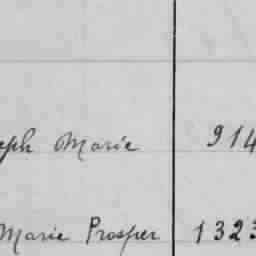 eph Marie 914
Marie Prosper 1323